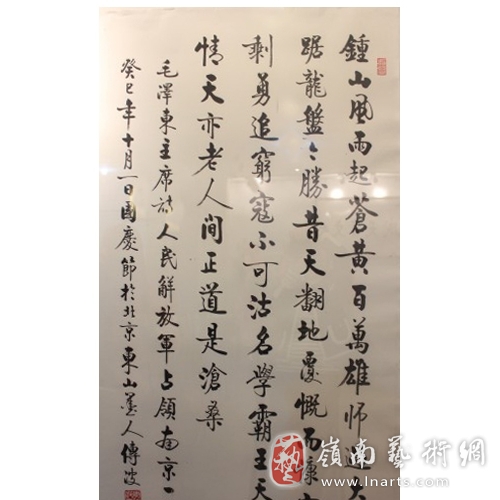 鍾山風雨起蒼黄百萬雄師過大
踞龍盤今勝昔天翻地覆慨而慷
剩勇追窮寇不可沽名學霸王天
情天亦老人間正道是滄桑
毛澤東主席詩人民解放軍占領南京
癸巳年十月一日國慶節於北京東山墨人傳波
藝 嶺南藝術網
www.lnarts.com